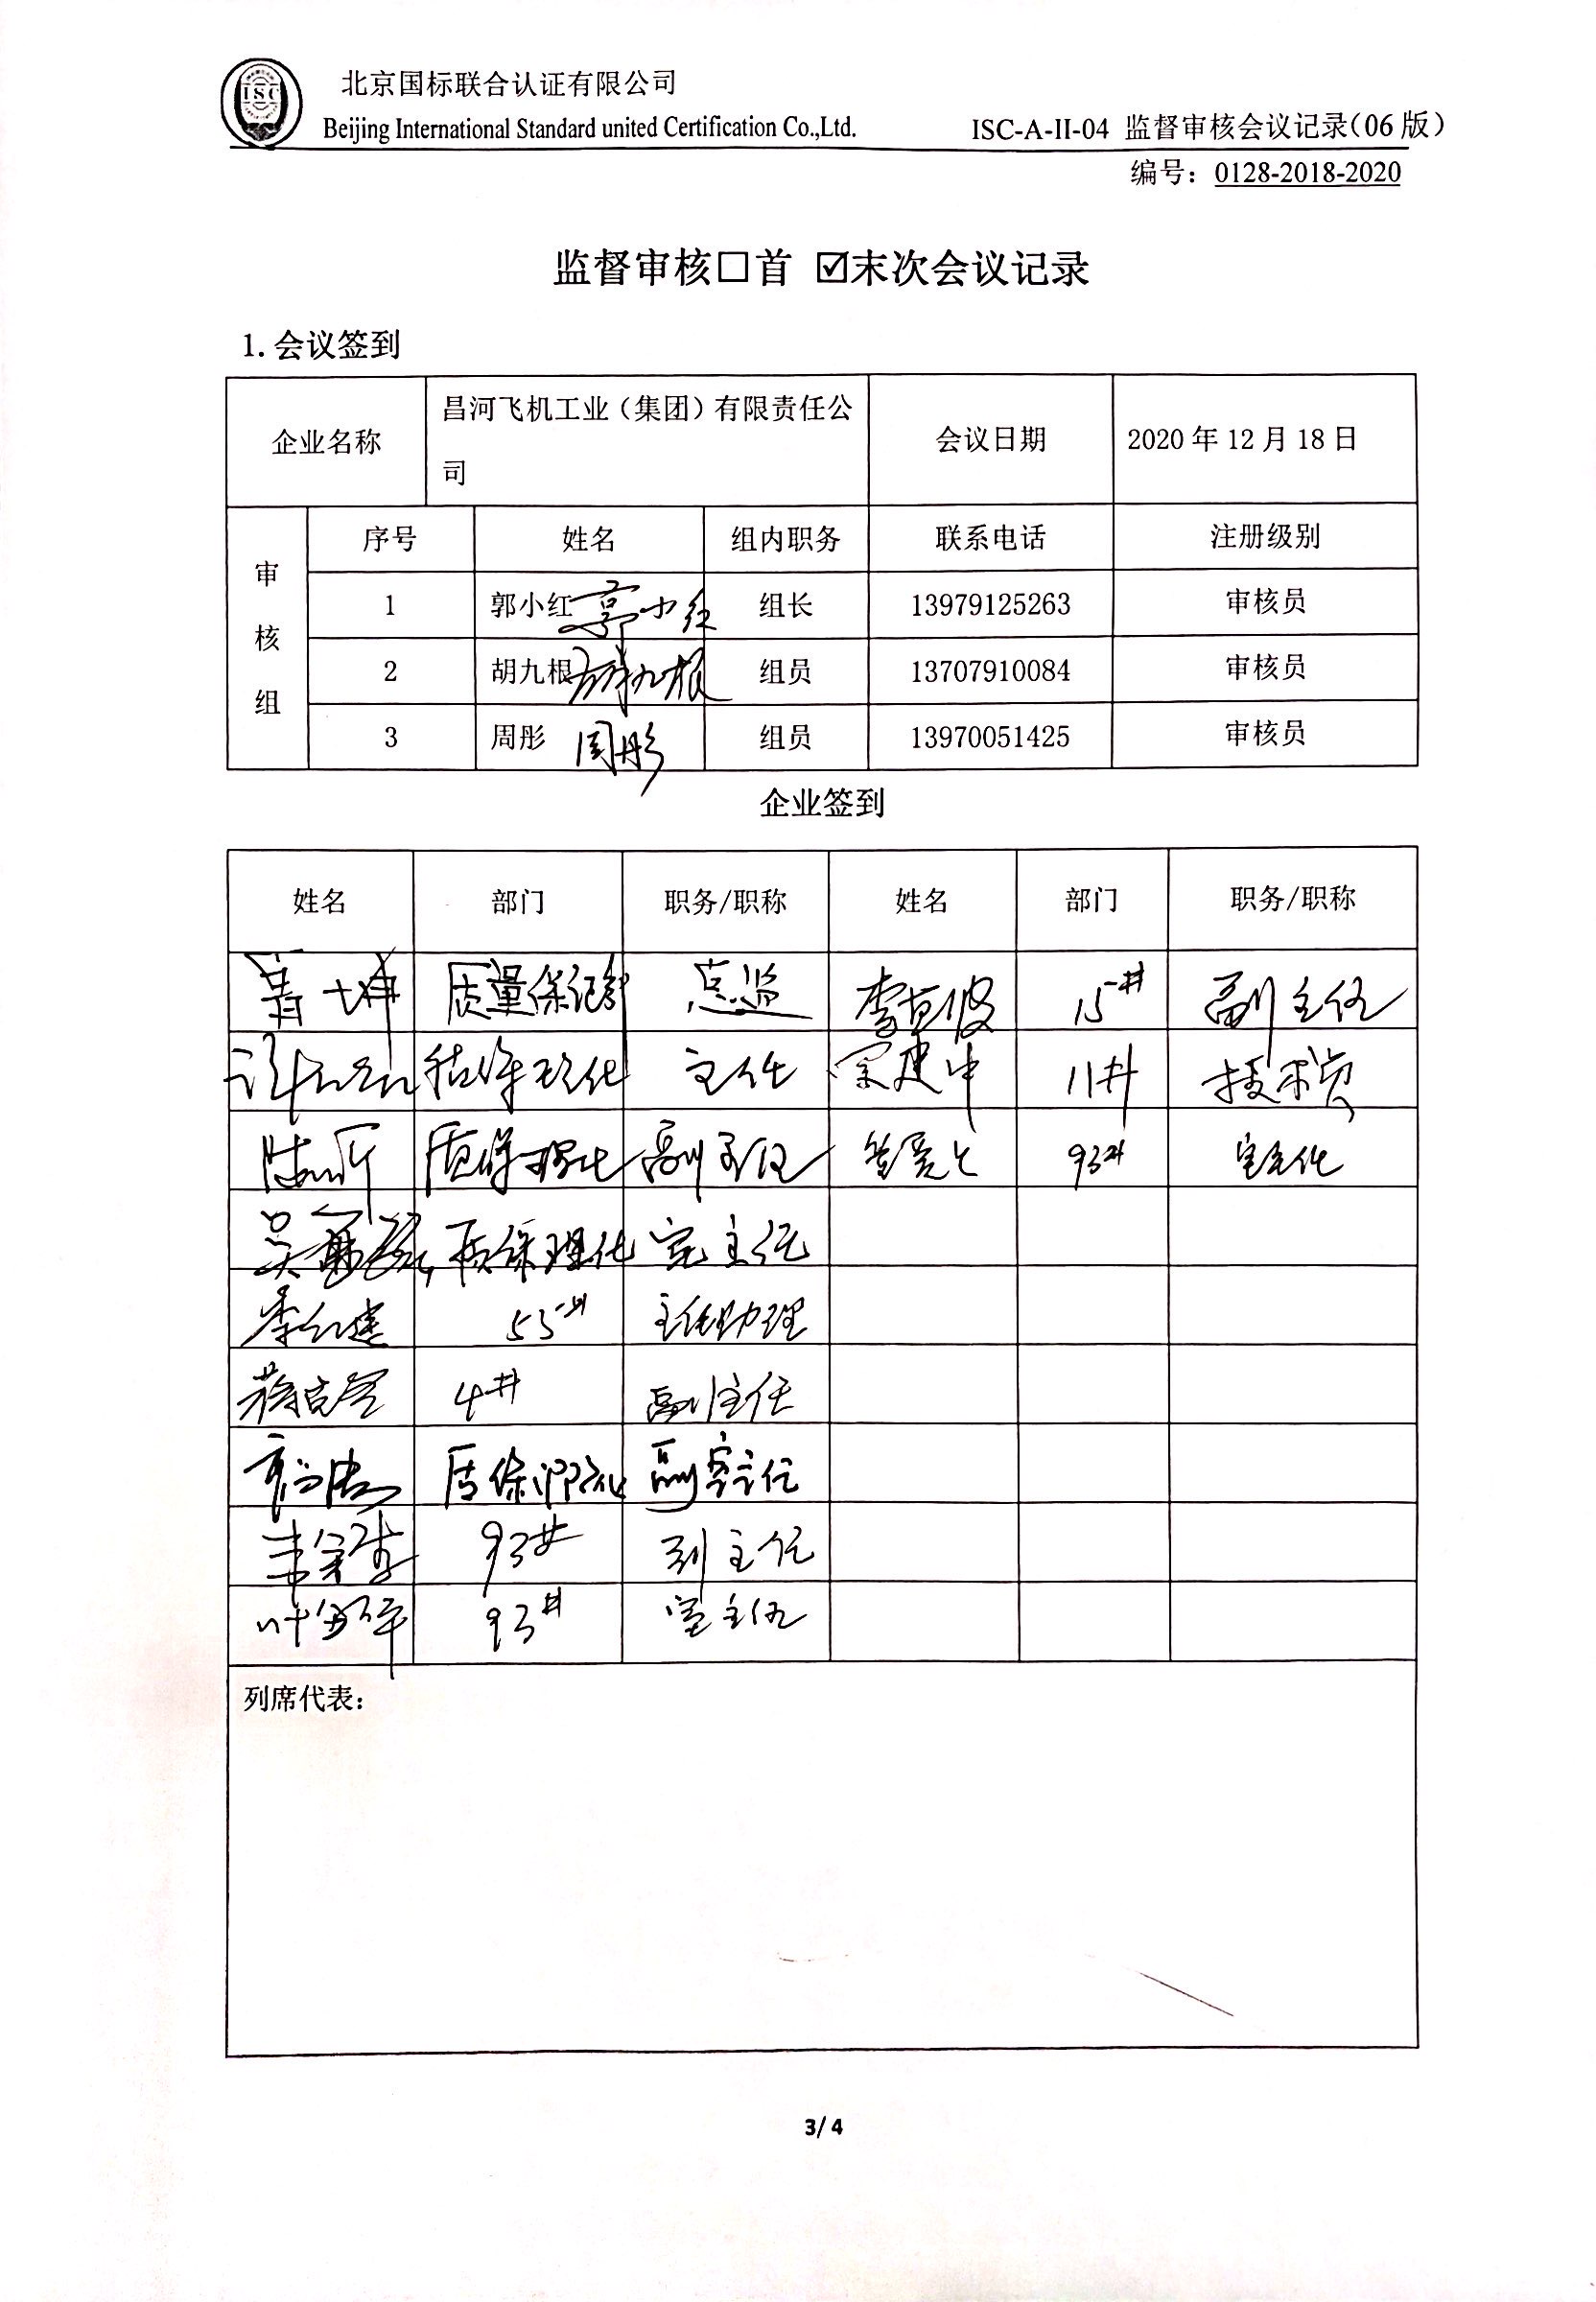 ISC
北京国标联合认证有限公司
Beijing International Standard united Certification Co.,Ltd.
ISC-A-II-04 监督审核会议记录(06 版)
编号: 0128-2018-2020
监督审核□首 ☑末次会议记录
1.会议签到
企业名称
昌河飞机工业(集团)有限责任公
司
会议日期
2020 年 12 月 18 日
审核组
序号 姓名 组内职务 联系电话 注册级别
1 郭小红 郭小红 组长 13979125263 审核员
2 胡九根 胡九根 组员 13707910084 审核员
3 周彤 周彤 组员 13970051425 审核员
企业签到
姓名 部门 职务/职称 姓名 部门 职务/职称
质量保证部 总监 15# 副主任
主任 宗建中 11# 技术员
质保理化 副主任 93# 室主任
质保理化 室主任
55# 主任助理
4# 副主任
质保 副室主任
93# 副主任
93# 室主任
列席代表:
3/ 4